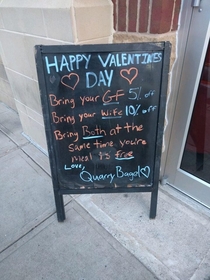 HAPPY VALENTINES
DAY
Bring your GF 5% off
Bring your Wife 10% off
Bring Both at the
same time you're
Meal is free
Love,
Quarry Bagel